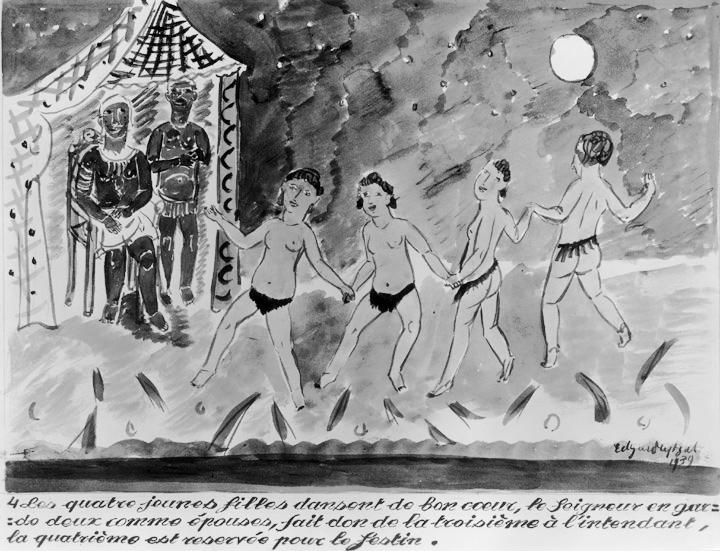 Edgard Tytgat
1939
4 Les quatre jeunes filles dansent de bon coeur, le Seigneur en gar=
=de deux comme épouses, fait don de la troisième à l'intendant,
la quatrième est reservée pour le festin.